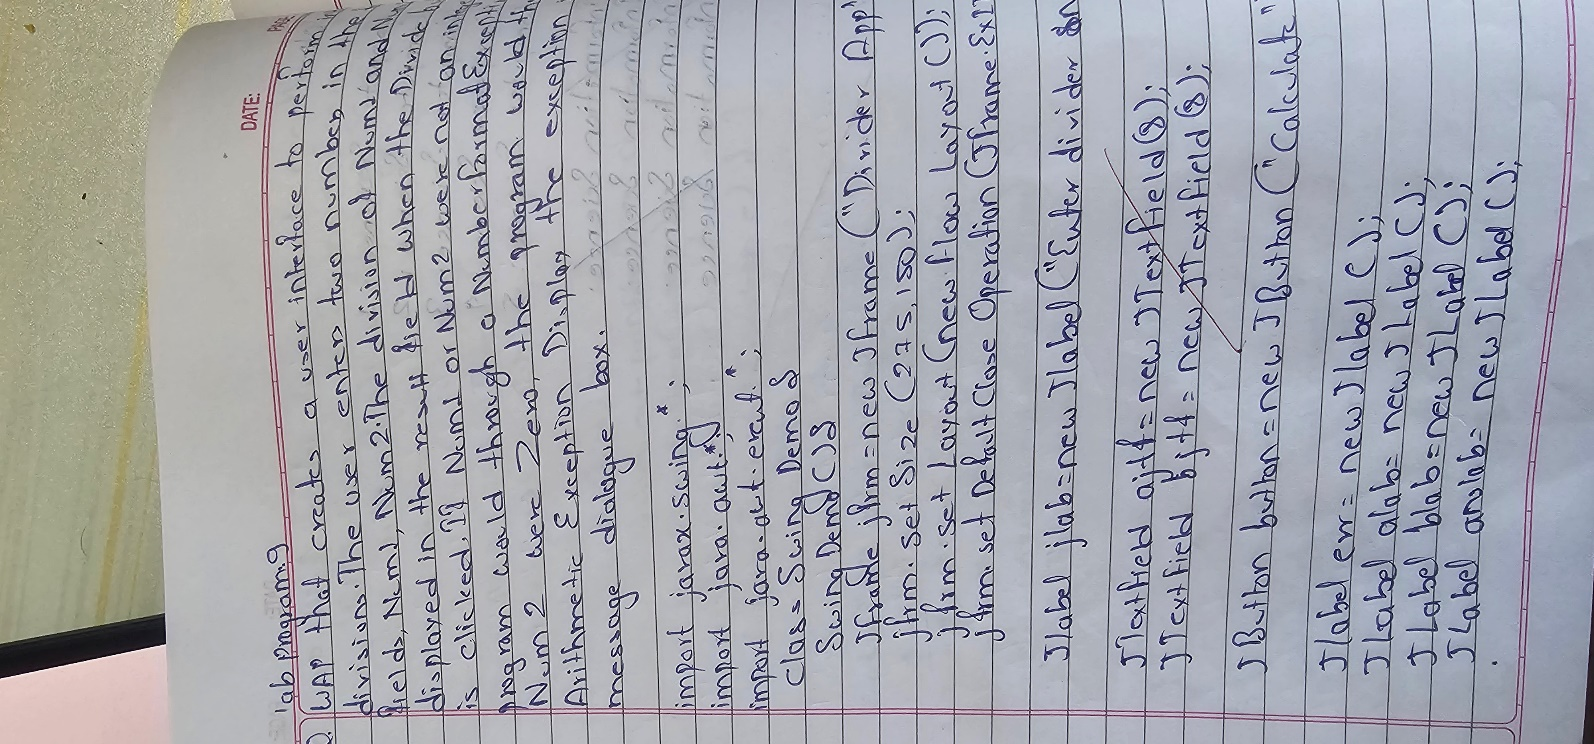 DATE:
lab program 9
Q. WAP that creates a user interface to perform
divisions. The user enters two numbers in the
fields, Num1, Num2. The division of Num1 and N
displayed in the result field when the Divide
is clicked. If Num1 or Num2 were not an inte
program would through a NumberFormatExcepti
Num2 were Zero, the program would th
Arithmetic Exception Display the exception
message dialogue box.
import javax.swing.*;
import java.awt.*;
import java.awt.event.*;
class Swing Demo{
Swing Demo(){
JFrame jfrm=new JFrame("Divider App"
jfrm.set Size (275,150);
jfrm.set Layout(new Flow Layout());
jfrm.set Default Close Operation(JFrame.Exi
Jlabel jlab=new Jlabel("Enter divider
JTextfield ajtf=new JTextfield(8);
JTextfield bjtf=new JTextfield(8);
JButton button=new JButton("Calculate"
Jlabel err=new Jlabel();
JLabel alab=new JLabel();
JLabel blab=new JLabel();
JLabel anslab=new JLabel();